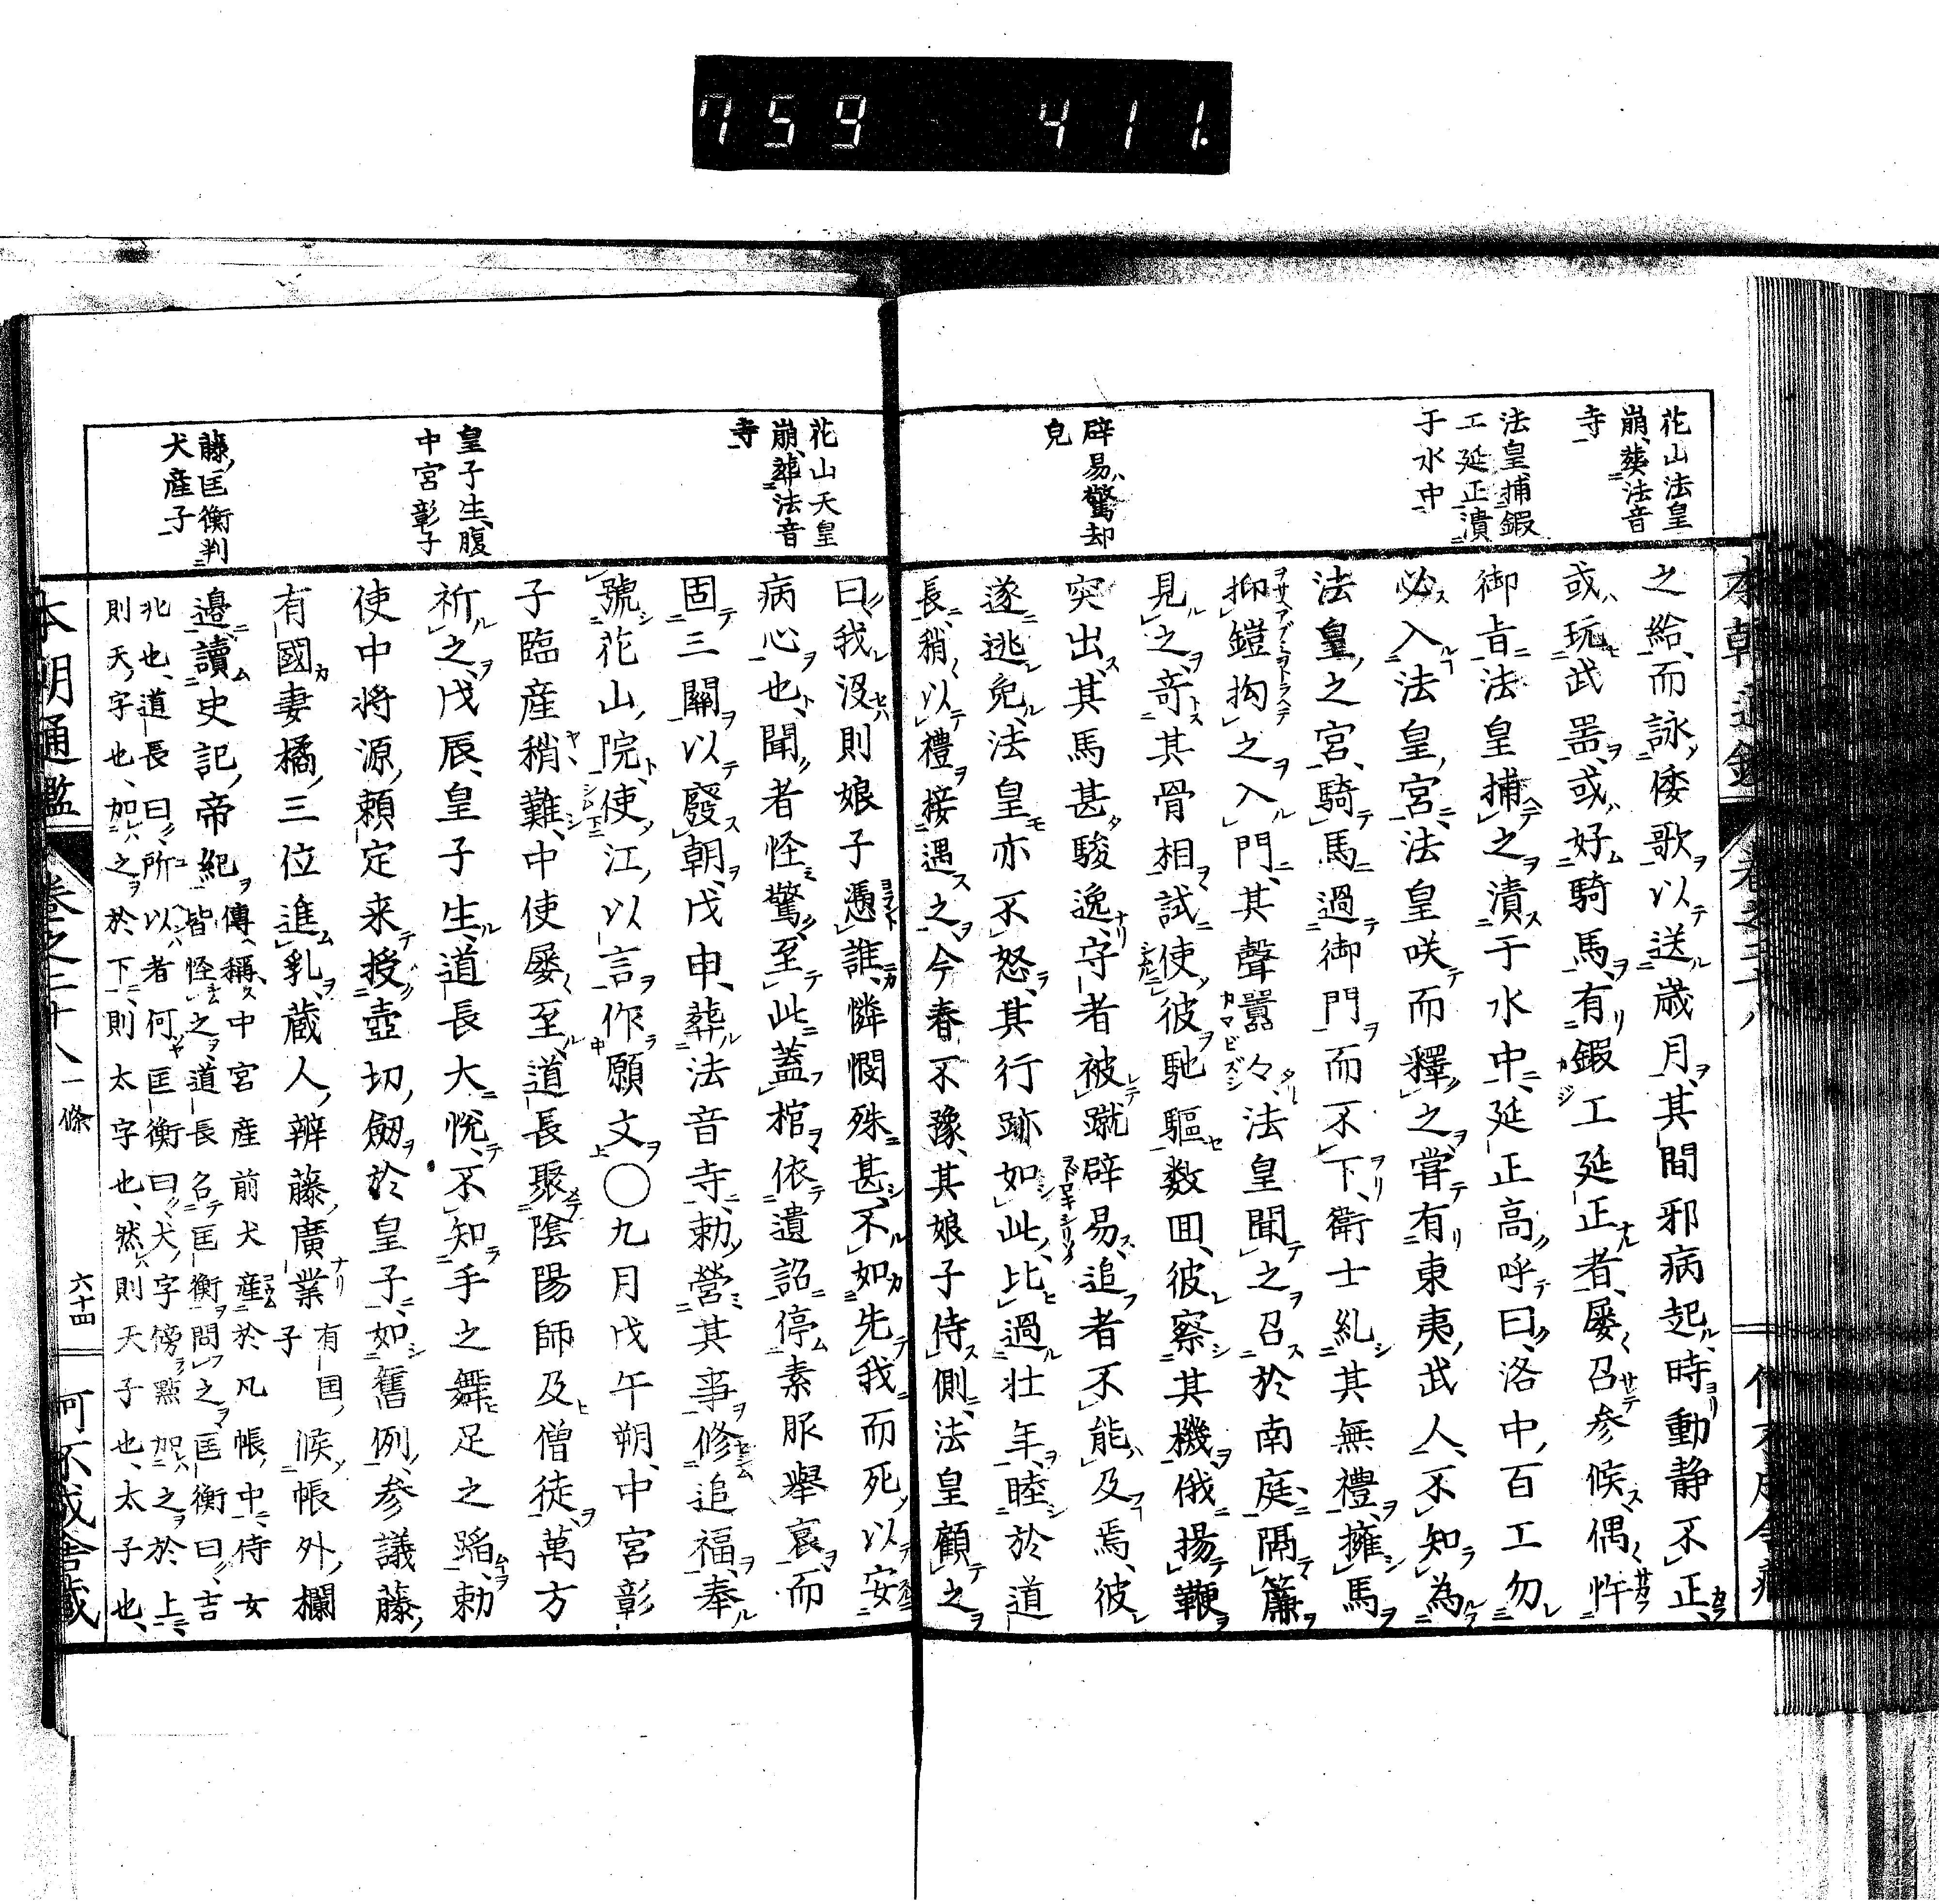 759 411.
花山法皇
崩、葬法音
寺
法皇捕鍜
工延正漬
于水中
辟易驚却
皃
之給、而詠倭歌以送歳月、其間邪病起、時動静不正、
或玩武噐、或好騎馬、有鍜工延正者、屡召参候、偶忤
御旨、法皇捕之漬于水中、延正高呼曰、洛中百工勿
必入法皇宮、法皇咲而釋之、嘗有東夷武人、不知為
法皇之宮、騎馬過御門而不下、衛士糺其無禮、擁馬
抑鐙拘之入門、其聲囂々、法皇聞之召於南庭、隔簾
見之、竒其骨相試使彼馳驅数囬、彼察其機、俄揚鞭
突出、其馬甚駿逸、守者被蹴辟易、追者不能及焉、彼
遂逃免、法皇亦不怒、其行跡如此、比過壮年、睦於道
長、稍以禮接遇之、今春不豫、其娘子侍側、法皇顧之
花山天皇
崩、葬法音
寺
皇子生、腹
中宮彰子
藤匡衡判
犬産子
曰、我没則娘子憑誰、憐憫殊甚、不如先我而死、以安
病心也、聞者怪驚、至此蓋棺、依遺詔停素服舉哀、而
固三關以廢朝、戊申、葬法音寺、勅營其事、修追福、奉
號花山院、使江以言作願文〇九月戊午朔、中宮彰
子臨産稍難、中使屡至、道長聚陰陽師及僧徒、萬方
祈之、戊辰、皇子生、道長大悦、不知手之舞足之蹈、勅
使中将源頼定来授壺切劒於皇子、如舊例、参議藤
有國妻橘三位進乳、蔵人辨藤廣業有国子候帳外欄
邉、讀史記帝紀、傳稱、中宮産前犬産於凡帳中、侍女
皆怪之、道長名匡衡問之、匡衡曰、吉
兆也、道長曰、所以者何、匡衡曰、犬字傍點加之於上、
則天字也、加之於下、則太字也、然則天子也、太子也、
本朝通鑑 卷之二十八 一條 六十四 何不成舎蔵